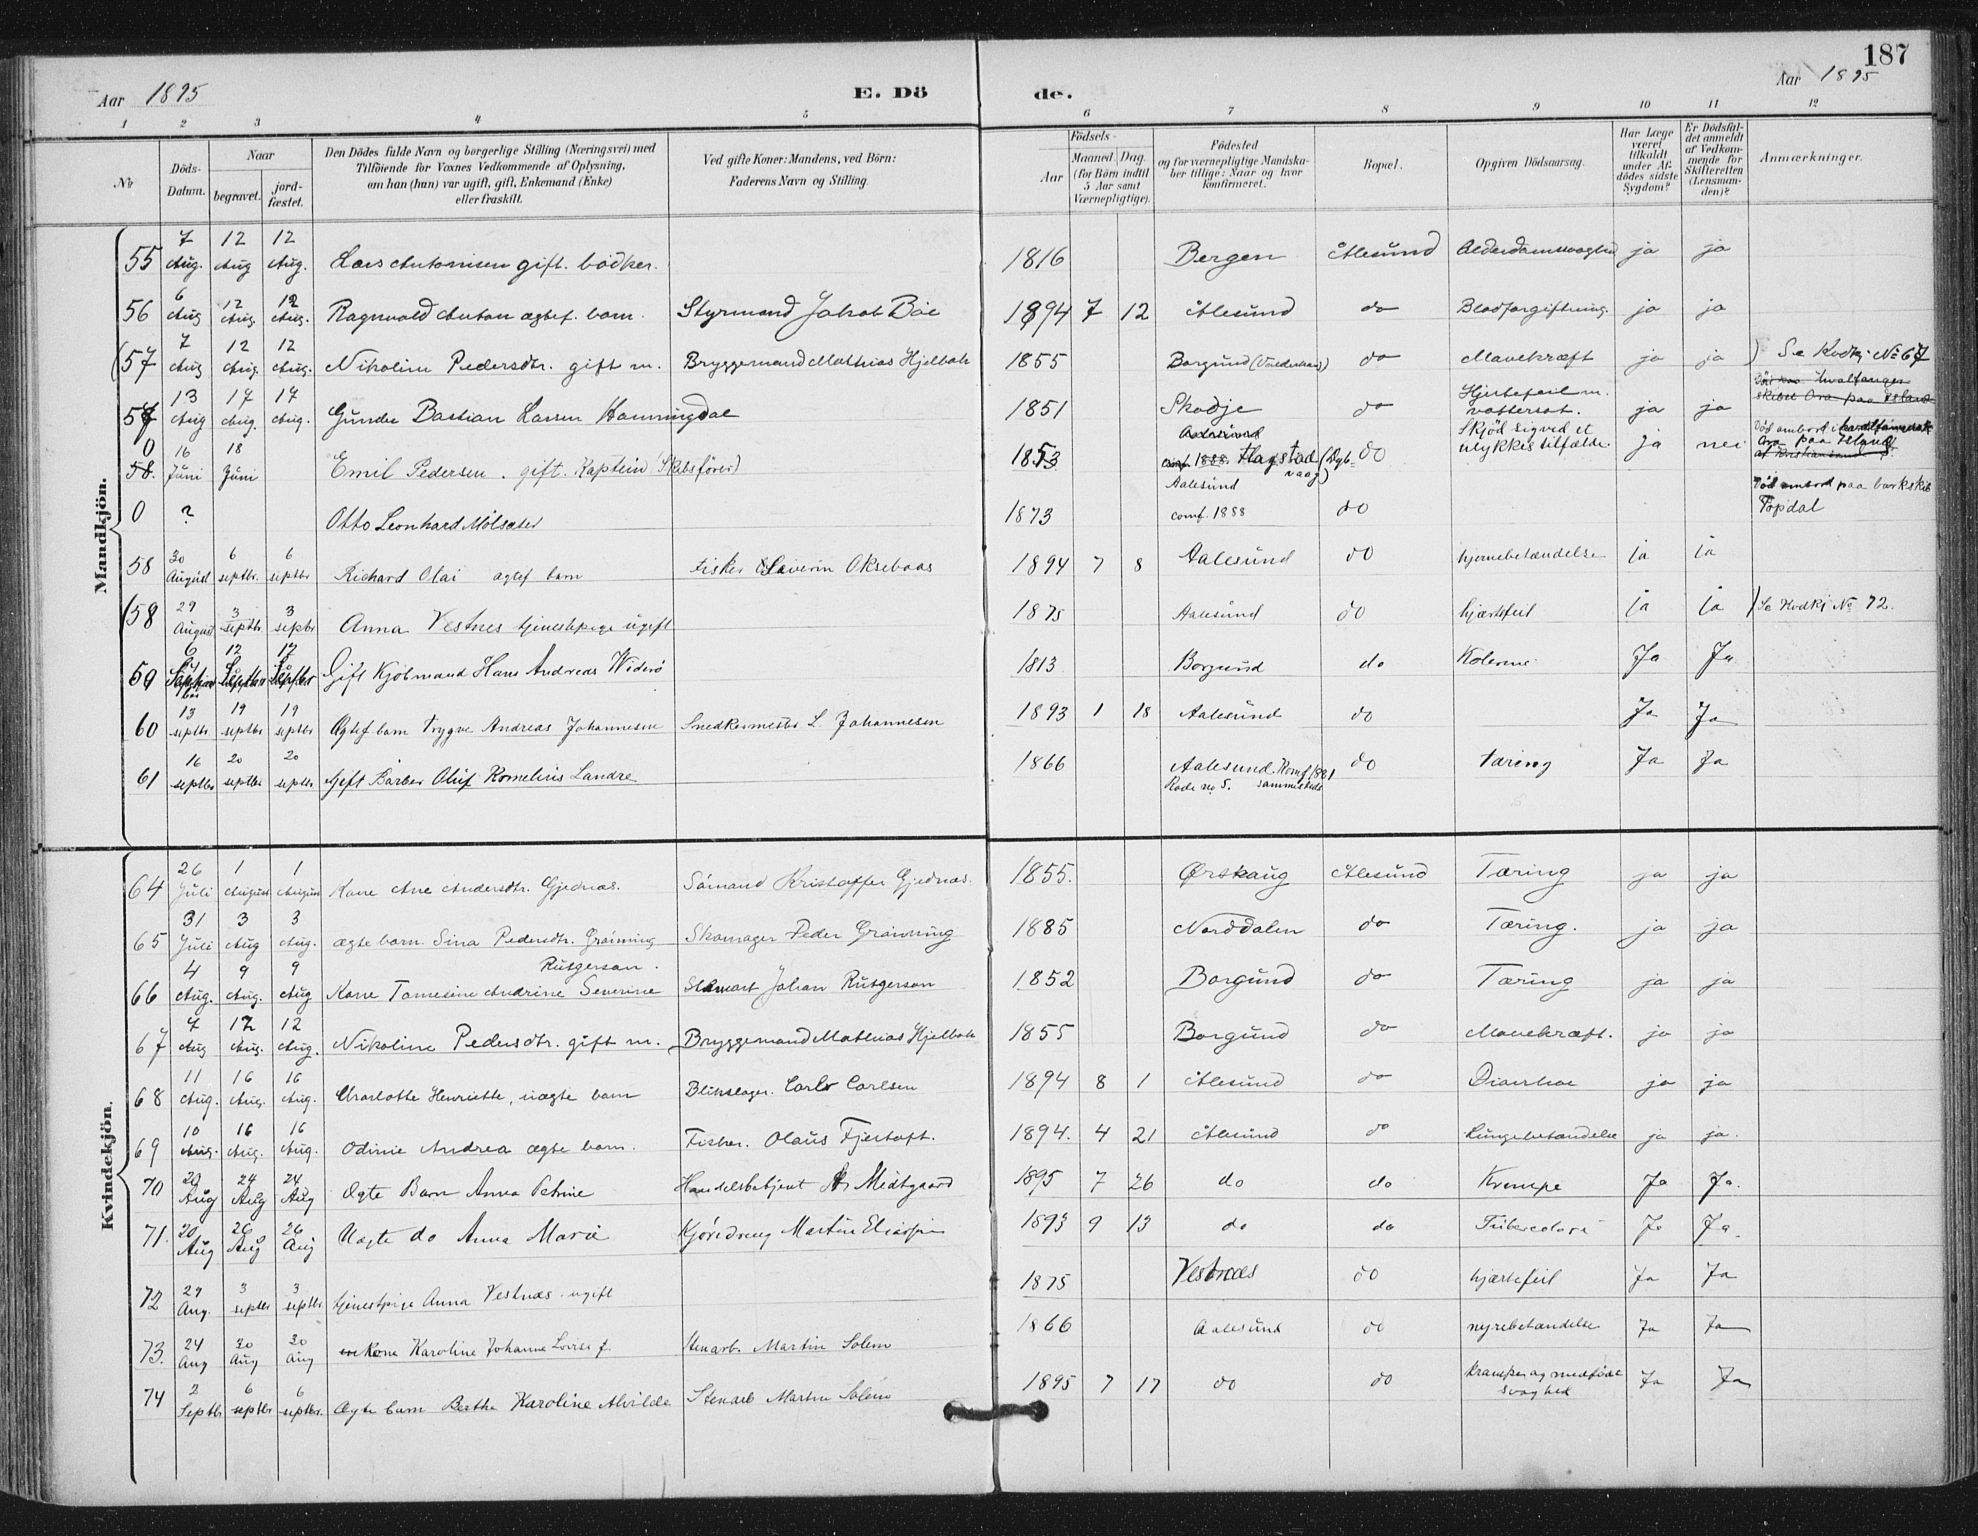 187
Aar 1895 E. Dö de. Aar 1895
1 2 3 4 5 6 7 8 9 10 11 12
No
Döds-Datum.
Naar begravet. jord-fæstet.
Den Dödes fulde Navn og borgerlige Stilling (Næringsvei) med Tilföiende for Voxnes Vedkommende af Oplysning, om han (hun) var ugift, gift, Enkemand (Enke) eller fraskilt.
Ved gifte Koner: Mandens, ved Börn: Faderens Navn og Stilling.
Födsels- Aar Maaned. Dag. (for Börn indtil 5 Aar samt Værnepligtige).
Födested og for værnepligtige Mandska-ber tillige: Naar og hvor konfirmeret.
Bopæl.
Opgiven Dödsaarsag.
Har Læge været tilkaldt under Af-dödes sidste Sygdom?
Er Dödsfal-det anmeldt af Vedkom-mende for Skifteretten (Lensman-den)?
Anmærkninger.
Mandkjön.
55 7 Aug. 12 Aug 12 Aug. Lars Antonisen gift. bödker. 1816 Bergen Ålesund Alderdomssvaghed ja ja
56 6 Aug 12 Aug. 12 Aug. Ragnvald Anton ægtef. barn. Styrmand Jakob Böe 1894 7 12 Ålesund do Blodforgiftning. ja ja
(57 7 Aug 12 Aug. 12 Aug. Nikoline Pedersdtr. gift m. Bryggemand Mathias Hjelbak 1855 Borgund do Mavekræft ja ja ) Se Kvdkj. No 67
57 13 Aug 17 Aug. 17 Aug. Gunder Bastian Larsen Hammingdal 1851 Skodje do Hjertefeil m. vattersot. ja ja
0 58. 16 Juni 18 Juni Emil Pedersen. gift. Kaptein (Skibsförer) 1853 Hagstad do Skjød sig ved et ulykkestilfælde. ja nei
0 ? Otto Leonhard Molsæter 1873 Aalesund conf. 1888 do Död ombord paa barkskib Topdal
58 30 August 6 septbr. 6 septbr Richard Olai ægtef barn Fisker Severin Oksebaas 1894 7 8 Aalesund do hjernebetændelse ja ja
(58 29 August 3 septbr 3 sepbr Anna Vestnes tjenestepige ugift 1875 Aalesund do hjærtefeil ja ja ) Se Kvdkj No 72.
59 6 12 12 Gift Kjöbmand Hans Andreas Widerö 1813 Borgund do Kolerine Ja Ja
60 13 septbr 19 septbr 19 septbr Ægtef barn Trygve Andreas Johannesen Snedkermester L. Johannesen 1893 1 18 Aalesund do Ja Ja
61 16 septbr 20 septbr 20 septbr Gift Barber Oluf Kornelius Landre 1866 Aalesund Konf 1881 Rode no 5. sammesteds do Tæring Ja Ja
Kvindekjön.
64 26 Juli 1 August 1 August Kone Ane Andersdtr. Gjednæs. Sömand Kristoffer Gjednæs. 1855. Ørskaug Ålesund Tæring ja ja
65 31 Juli 3 Aug 3 Aug. ægte barn Sina Pedersdtr. Grönning Skomager Peder Grönning 1885 Norddalen do Tæring. ja ja
66 4 Aug. 9 Aug. 9 Aug Kone Tomesine Andrine Severine Rutgerson. Johan Rutgerson 1852 Borgund do Tæring ja ja
67 7 Aug 12 Aug. 12 Aug. Nikoline Pedersdtr. gift m. Bryggemand Mathias Hjelbak 1855 Borgund do Mavekræft. ja ja
68 11 Aug. 16 Aug. 16 Aug. Charlotte Henriette, uægte barn Blikslager. Carl Carlsen 1894 8 1 Ålesund do Diarrhoe ja ja
69 10 Aug. 16 Aug. 16 Aug. Odinie Andrea ægte barn. Fisker. Olaus Fjertoft. 1894. 4 21 Ålesund do Lungebetændelse ja ja.
70 20 Aug 24 Aug 24 Aug Ægte Barn Anna Petrine Handelsbetjent Midtgaard 1895 7 26 do do Krampe Ja Ja.
71. 20 Aug 26 Aug 26 Aug Uægte do Anna Marie Kjöredreng Martin 1893 9 13 do do Tuberculose Ja Ja.
72 29 Aug. 3 septbr 3 septbr tjenestpige Anna Vestnæs. ugift 1875 Vestnæs do hjærtefeil Ja Ja
73. 24 Aug 30 Aug 30 Aug Kone Karoline Johanne Lovise f. Stenarb. Martin Solem 1866 Aalesund do nyrebetændelse Ja Ja
74 2 Septbr 6 septbr 6 septbr. Ægte barn Berthe Karoline Alvilde Stenarb Martin Solem 1895 7 17 do do krampe og medfødt svaghed Ja Ja